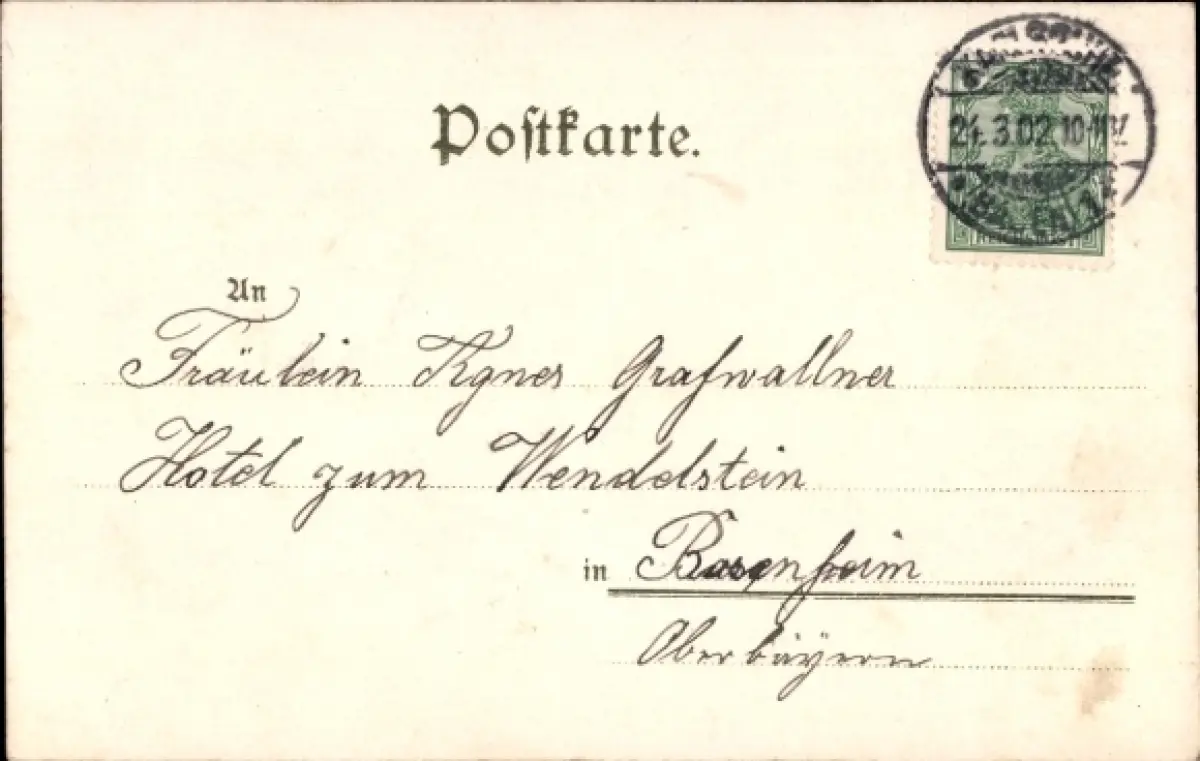 Postkarte.
24.3.02.10-11V
(BADEN) 1
An
Fräulein Agnes Grafwallner
Hotel zum Wendelstein
in Rosenheim
Oberbayern